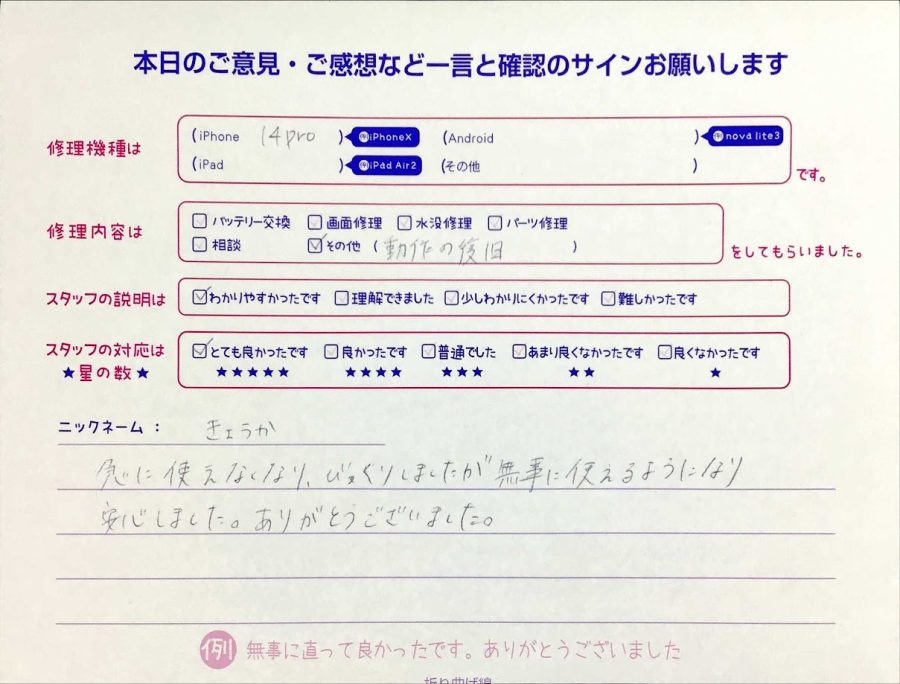 本日のご意見・ご感想など一言と確認のサインお願いします
修理機種は (iPhone 14pro ) 例iPhoneX (Android ) 例nova lite3
(iPad ) 例iPad Air2 (その他 ) です。
修理内容は □バッテリー交換 □画面修理 □水没修理 □パーツ修理
□相談 ☑その他 ( 動作の復旧 ) をしてもらいました。
スタッフの説明は ☑わかりやすかったです □理解できました □少しわかりにくかったです □難しかったです
スタッフの対応は ☑とても良かったです □良かったです □普通でした □あまり良くなかったです □良くなかったです
★星の数★ ★★★★★ ★★★★ ★★★ ★★ ★
ニックネーム: きょうか
急に使えなくなり、びっくりしましたが無事に使えるようになり
安心しました。ありがとうございました。
例 無事に直って良かったです。ありがとうございました
折り曲げ線